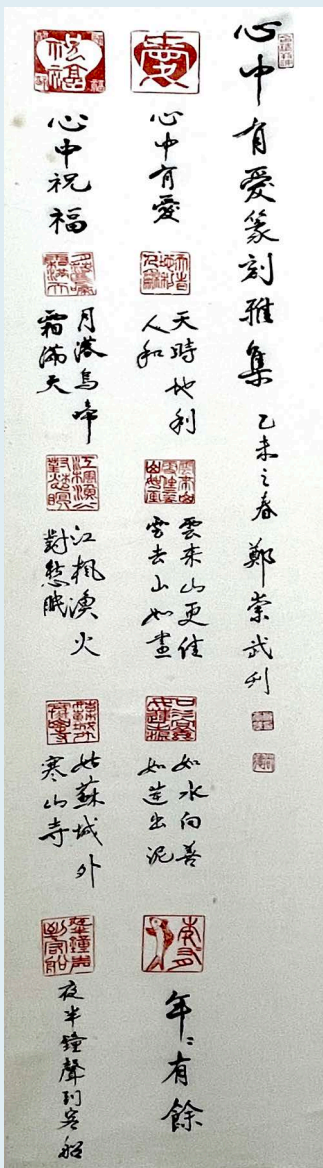 心中有愛篆刻雅集
乙未之春 鄭崇武刊
愛
心中有愛
天時地利
人和
雲來山更佳
雲去山如畫
如水向善
如蓮出泥
年々有餘
心中祝福
月落烏啼
霜滿天
江楓漁火
對愁眠
姑蘇城外
寒山寺
夜半鐘聲到客船